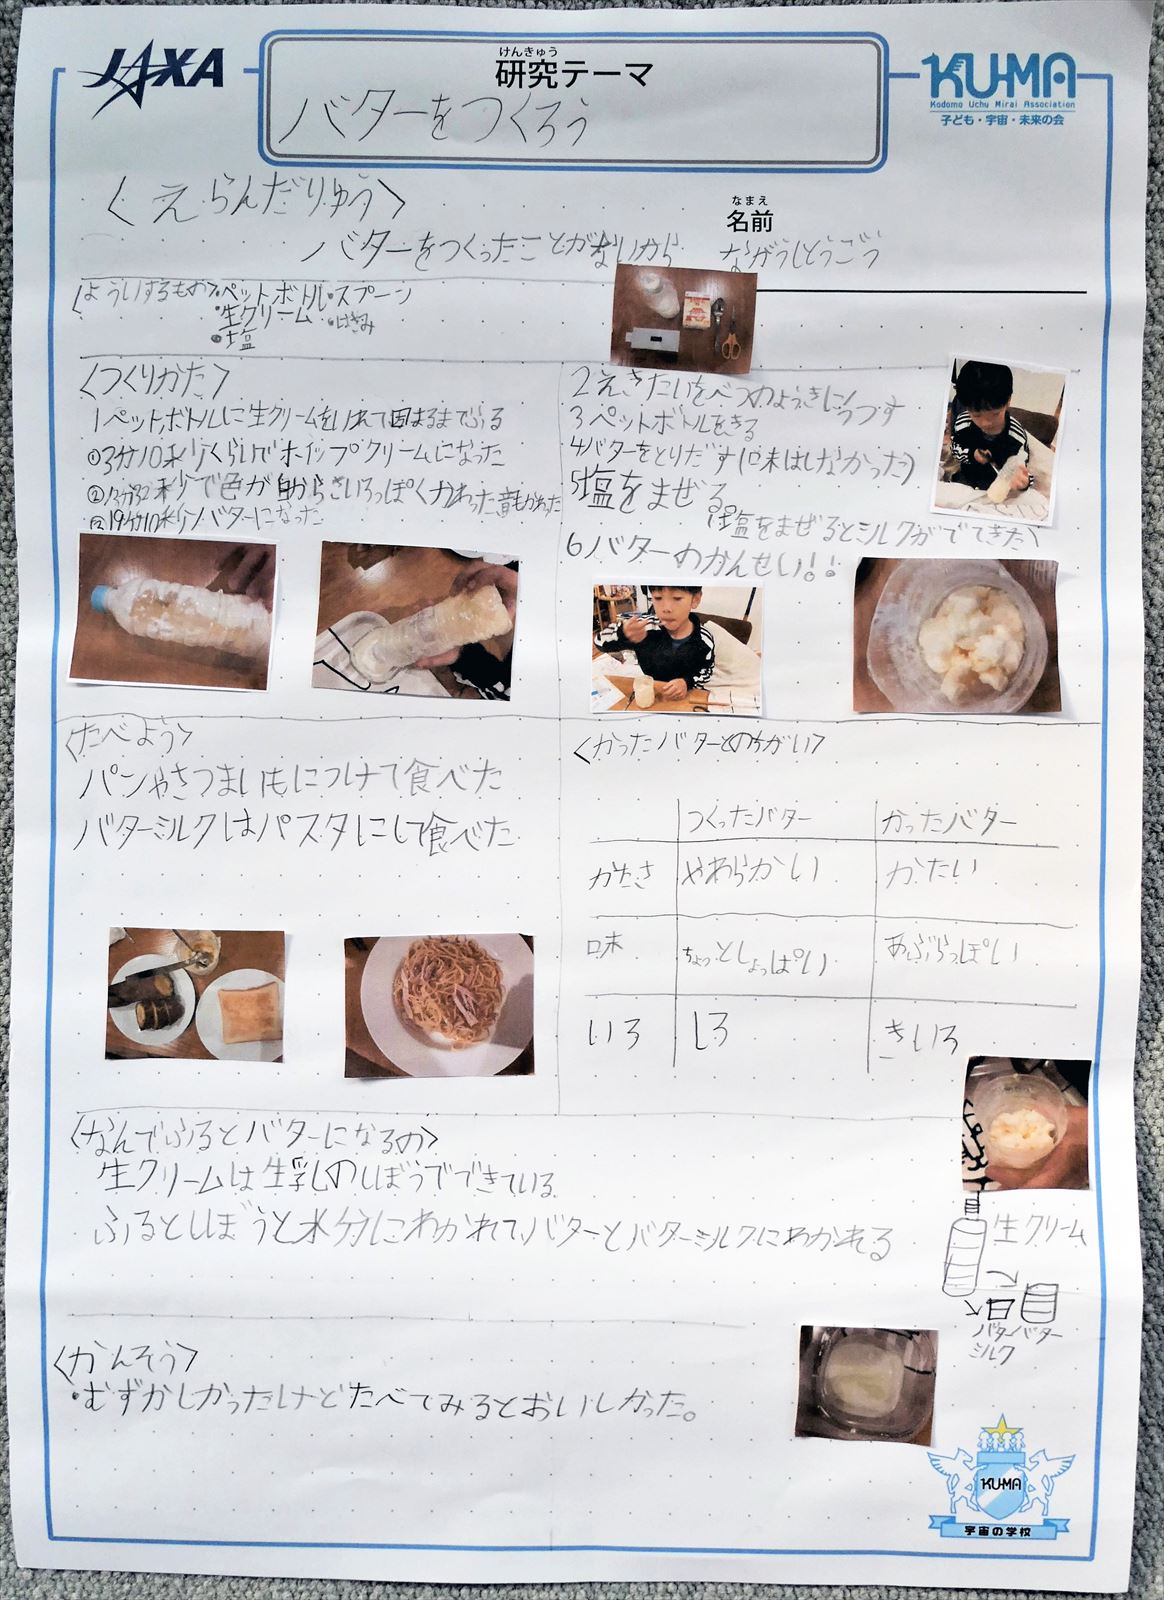 JAXA
けんきゅう
研究テーマ
バターをつくろう
KU-MA
Kodomo Uchu Mirai Association
子ども・宇宙・未来の会
〈えらんだりゆう〉
バターをつくったことがないから
なまえ
名前
ながうしとうごう
〈よういするもの〉・ペットボトル・スプーン
・生クリーム ・はさみ
・塩
〈つくりかた〉
1ペットボトルに生クリームをいれて固まるまでふる
①3分10秒くらいでホイップクリームになった
秒で色が白からきいろっぽくかわった音もかわった
19分10秒バターになった
2えきたいをべつのようきにうつす
3ペットボトルをきる
4バターをとりだす(味はしなかった)
5塩をまぜる。
(塩をまぜるとミルクがでてきた)
6バターのかんせい!!
〈たべよう〉
パンやさつまいもにつけて食べた
バターミルクはパスタにして食べた
〈かったバターとのちがい〉
つくったバター かったバター
かたさ やわらかい かたい
味 ちょっとしょっぱい あぶらっぽい
いろ しろ きいろ
〈なんでふるとバターになるの〉
生クリームは生乳のしぼうでできている
ふるとしぼうと水分にわかれてバターとバターミルクにわかれる
生クリーム
バターバター
ミルク
〈かんそう〉
・むずかしかったけどたべてみるとおいしかった。
KU-MA
宇宙の学校